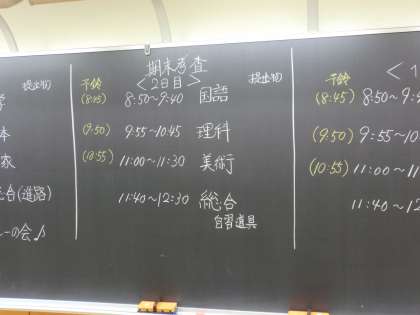 提出物
本
家
総合(進路)
の会♪
期末考査
<2日目>
予鈴 提出物
(8:45) 8:50~9:40 国語
(9:50) 9:55~10:45 理科
(10:55) 11:00~11:30 美術
11:40~12:30 総合
自習道具
予鈴 <1
(8:45) 8:50~9
(9:50) 9:55~10
(10:55) 11:00~11
11:40~12